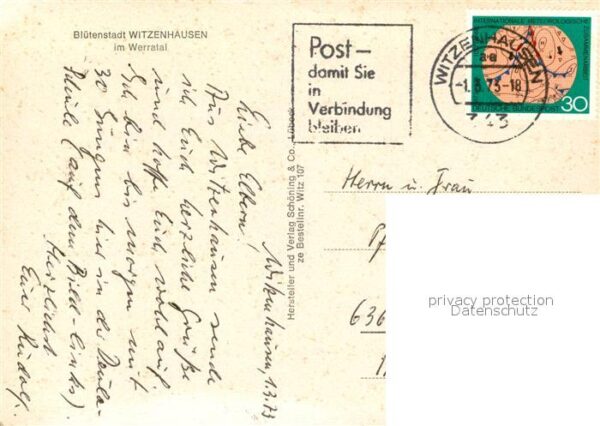 Blütenstadt WITZENHAUSEN
im Werratal
Witzenhausen, 1.3.73
Liebe Eltern!
Aus Witzenhausen sende
ich Euch herzliche Grüße
und hoffe Euch wohlauf.
Ich bin bis morgen mit
30 Jungens hier in der Deula-
Schule (auf dem Bild-links).
Herzlichst
Euer Rudolf.
Hersteller und Verlag Schöning & Co., Lübeck
ze Bestellnr. Witz 107
Post –
damit Sie
in
Verbindung
bleiben
WITZENHAUSEN
-1.3.73-18
343
INTERNATIONALE METEOROLOGISCHE
ZUSAMMENARBEIT
DEUTSCHE BUNDESPOST 30
Herrn u. Frau
Pf
636
privacy protection
Datenschutz